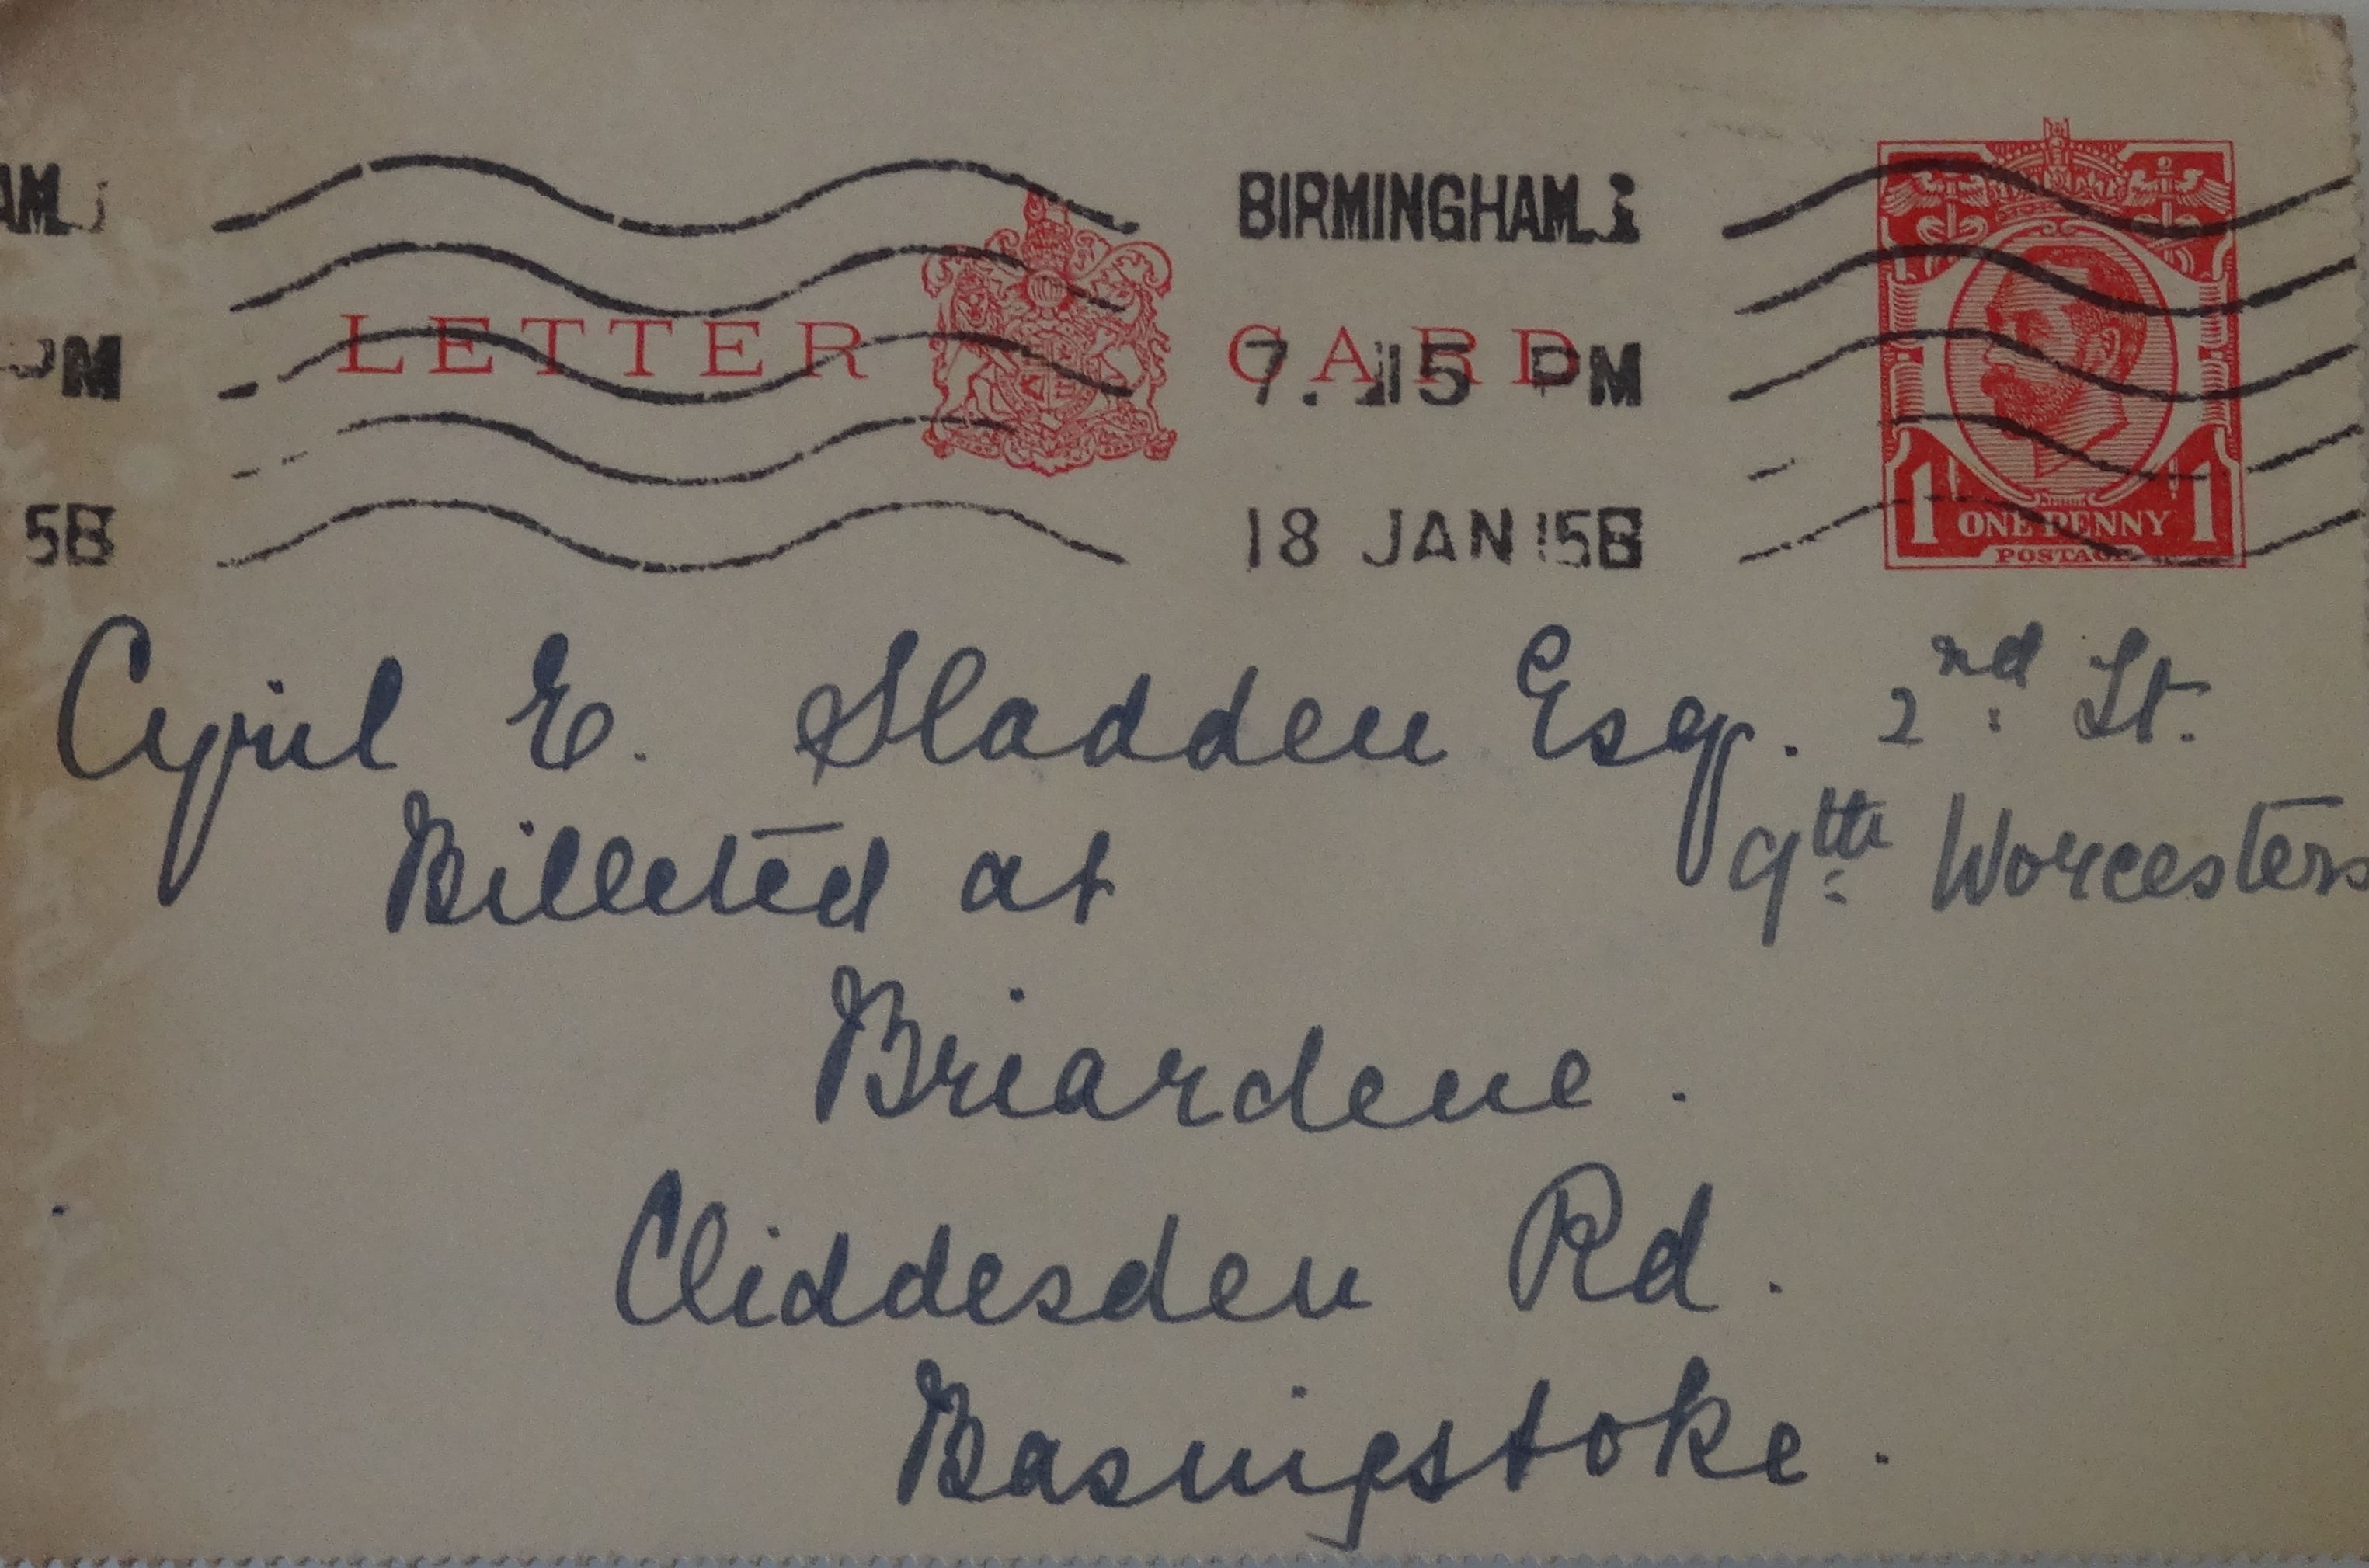 AM.
BIRMINGHAM.
LETTER CARD
PM
7. 15 PM
5B
18 JAN 15B
1 ONE PENNY 1
POSTAGE
Cyril E. Sladden Esq. 2nd Lt.
Billeted at 9th Worcesters
Briardene.
Cliddesden Rd.
Basingstoke.